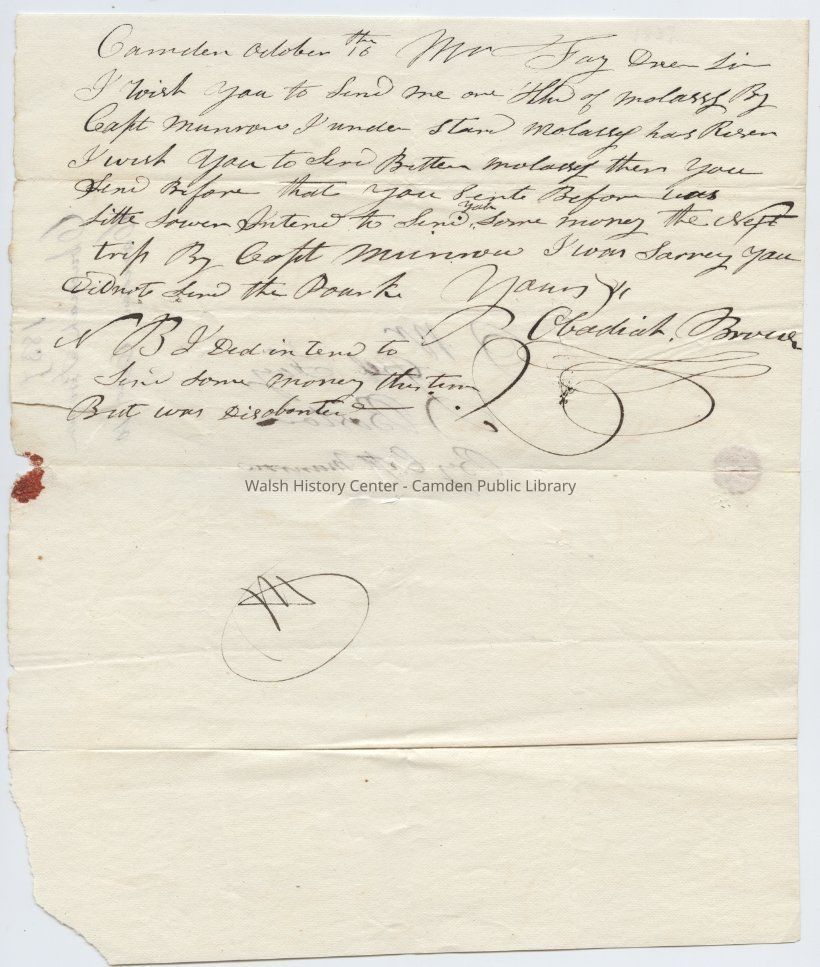 Camden October 16 the Mr Fay Deer Sir
I Wish You to Send me one Hhd of molassy By
Capt Munrow I under stand molassy has Risen
I wish You to Send Better molassy then You
Send Before that you Sente Before was
Little Sower I ntend to Send you Some money the Next
trip By Capt Munrow I was Sarrey you
Did not Send the Poark Yours &
Obadiah. Brown
N B I Ded in tend to
Send some money this tim
But was Disobonted
By Capt Munrow
Walsh History Center - Camden Public Library